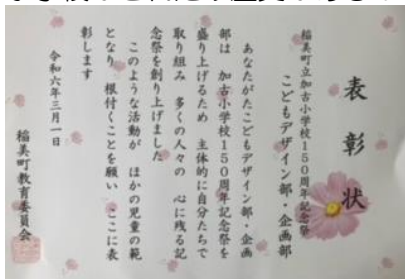 表彰状
稲美町立加古小学校150周年記念祭
こどもデザイン部・企画部
あなたがたこどもデザイン部・企画
部は 加古小学校150周年記念祭を
盛り上げるため 主体的に自分たちで
取り組み 多くの人々の 心に残る記
念祭を創り上げました
このような活動が ほかの児童の範
となり 根付くことを願い ここに表
彰します
令和六年三月一日
稲美町教育委員会